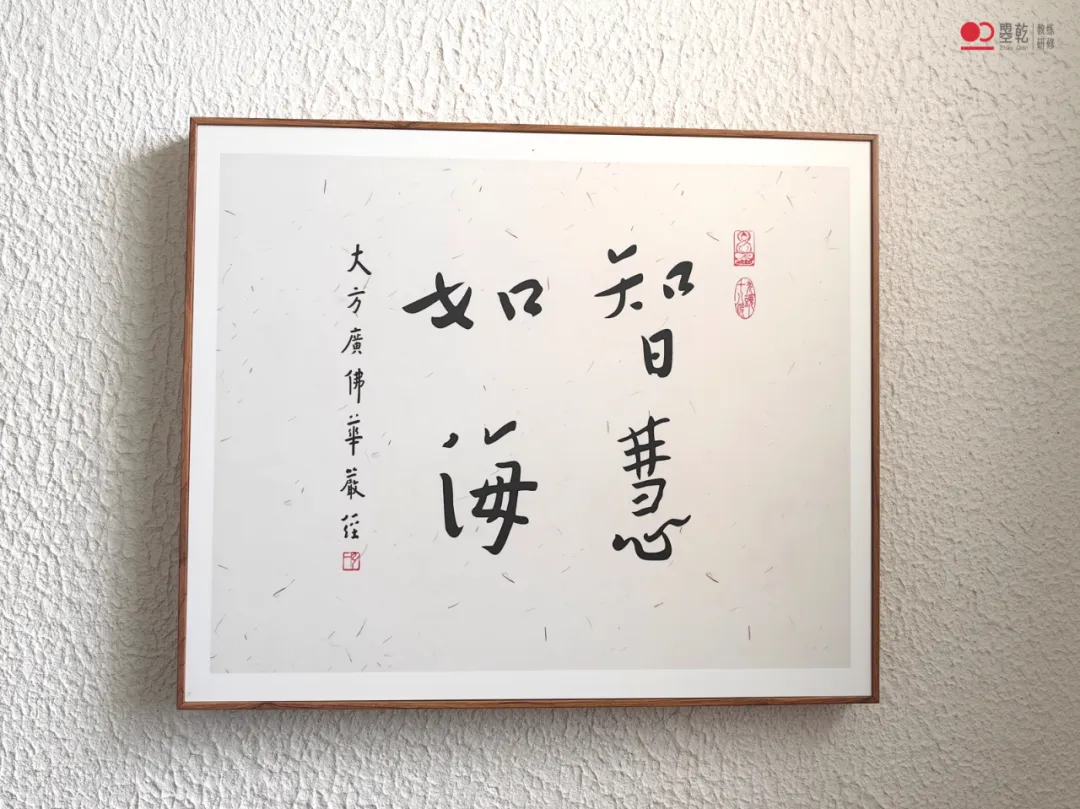 智慧
如海
大方廣佛華嚴經
曌乾
教练
研修